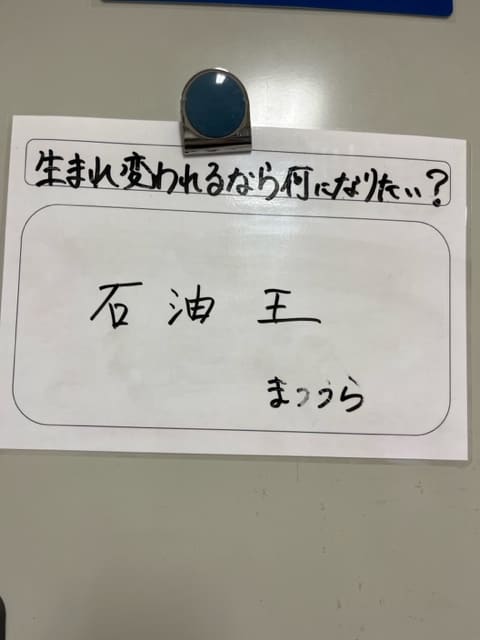 生まれ変われるなら何になりたい?
石油王
まつうら